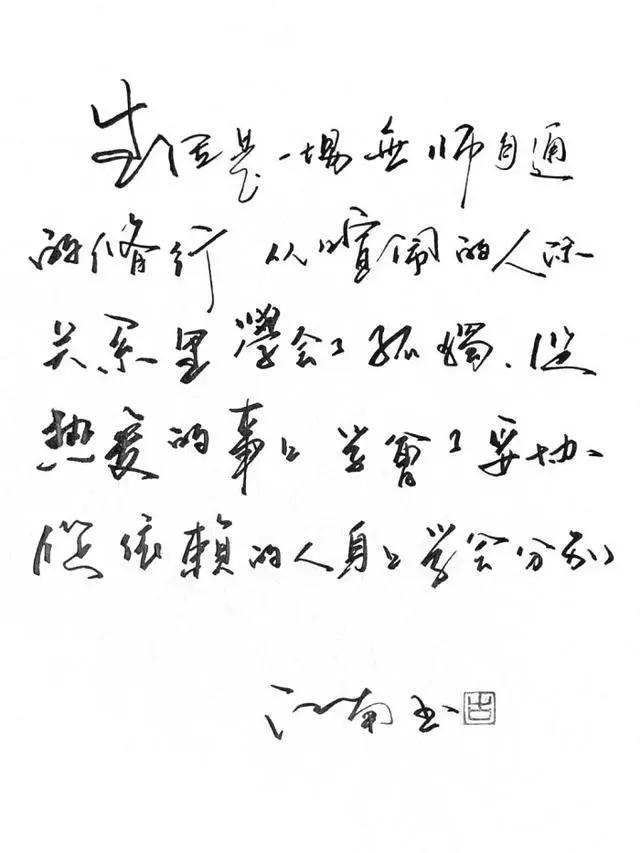 生活是一场無师自通
的修行 从喧闹的人际
关系里學会了孤獨、從
热爱的事上学會了妥协
從依賴的人身上学会分别
江南书